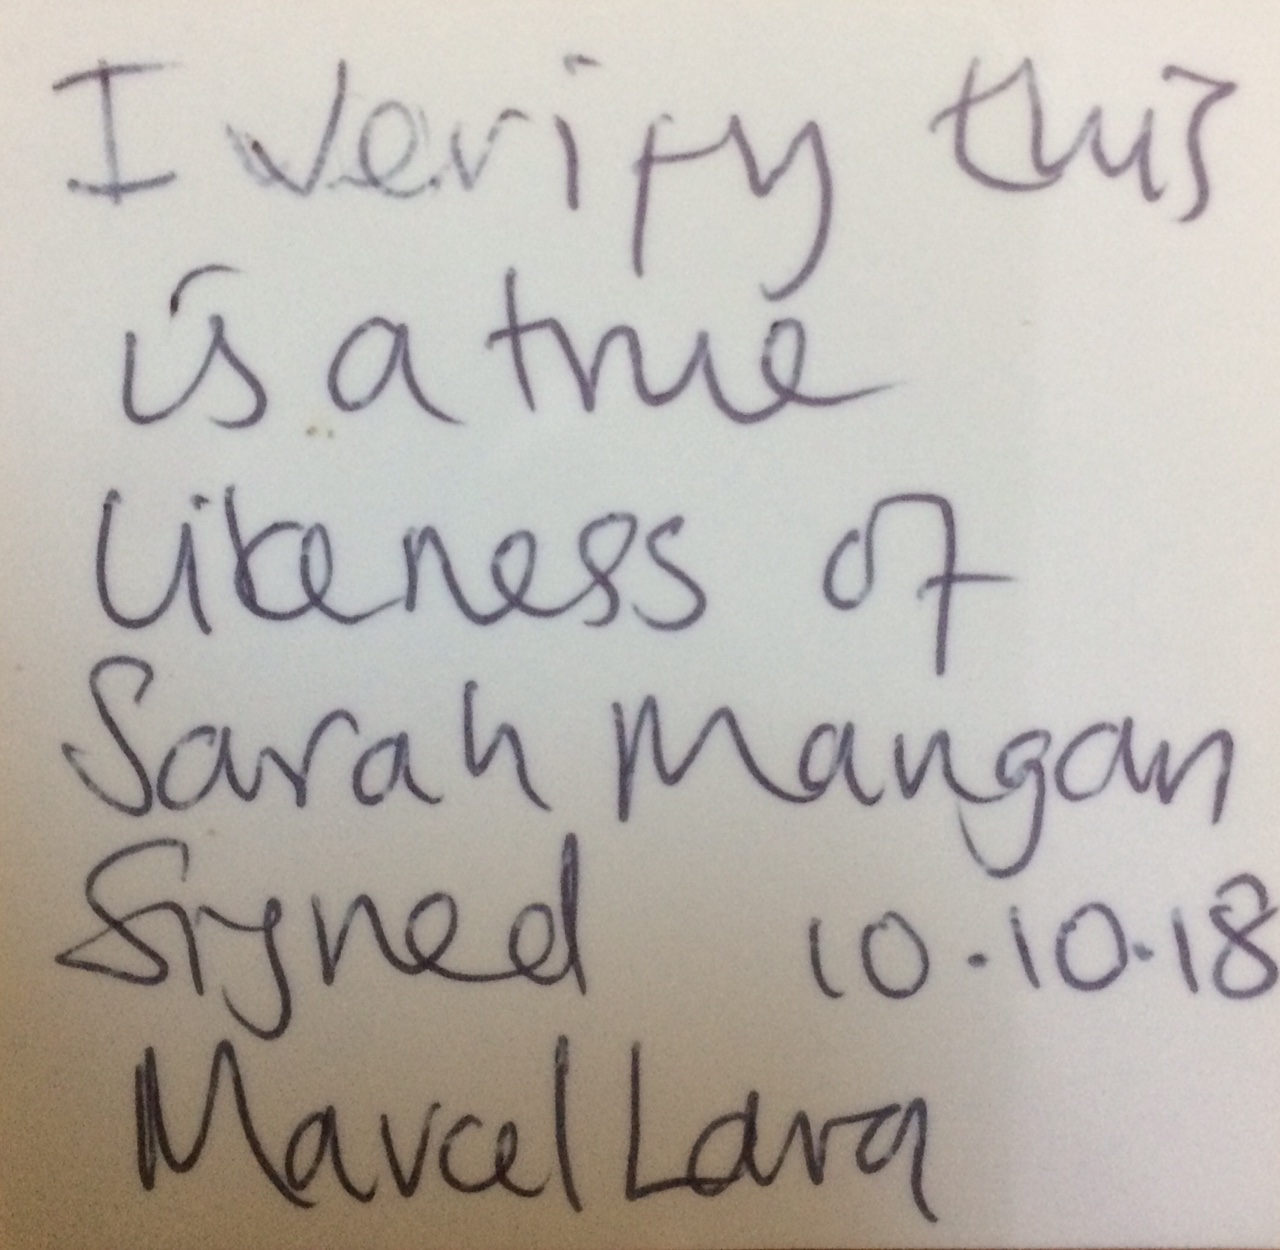 I verify this
is a true
likeness of
Sarah Mangan
Signed 10.10.18
Marcel Lara